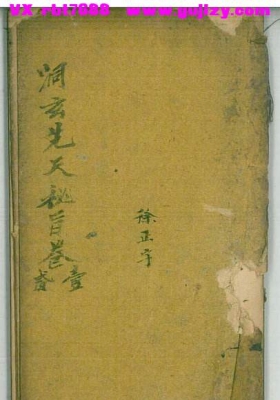 VX:rbt7888 www.gujizy.com
洞玄先天秘旨卷壹
徐正宇